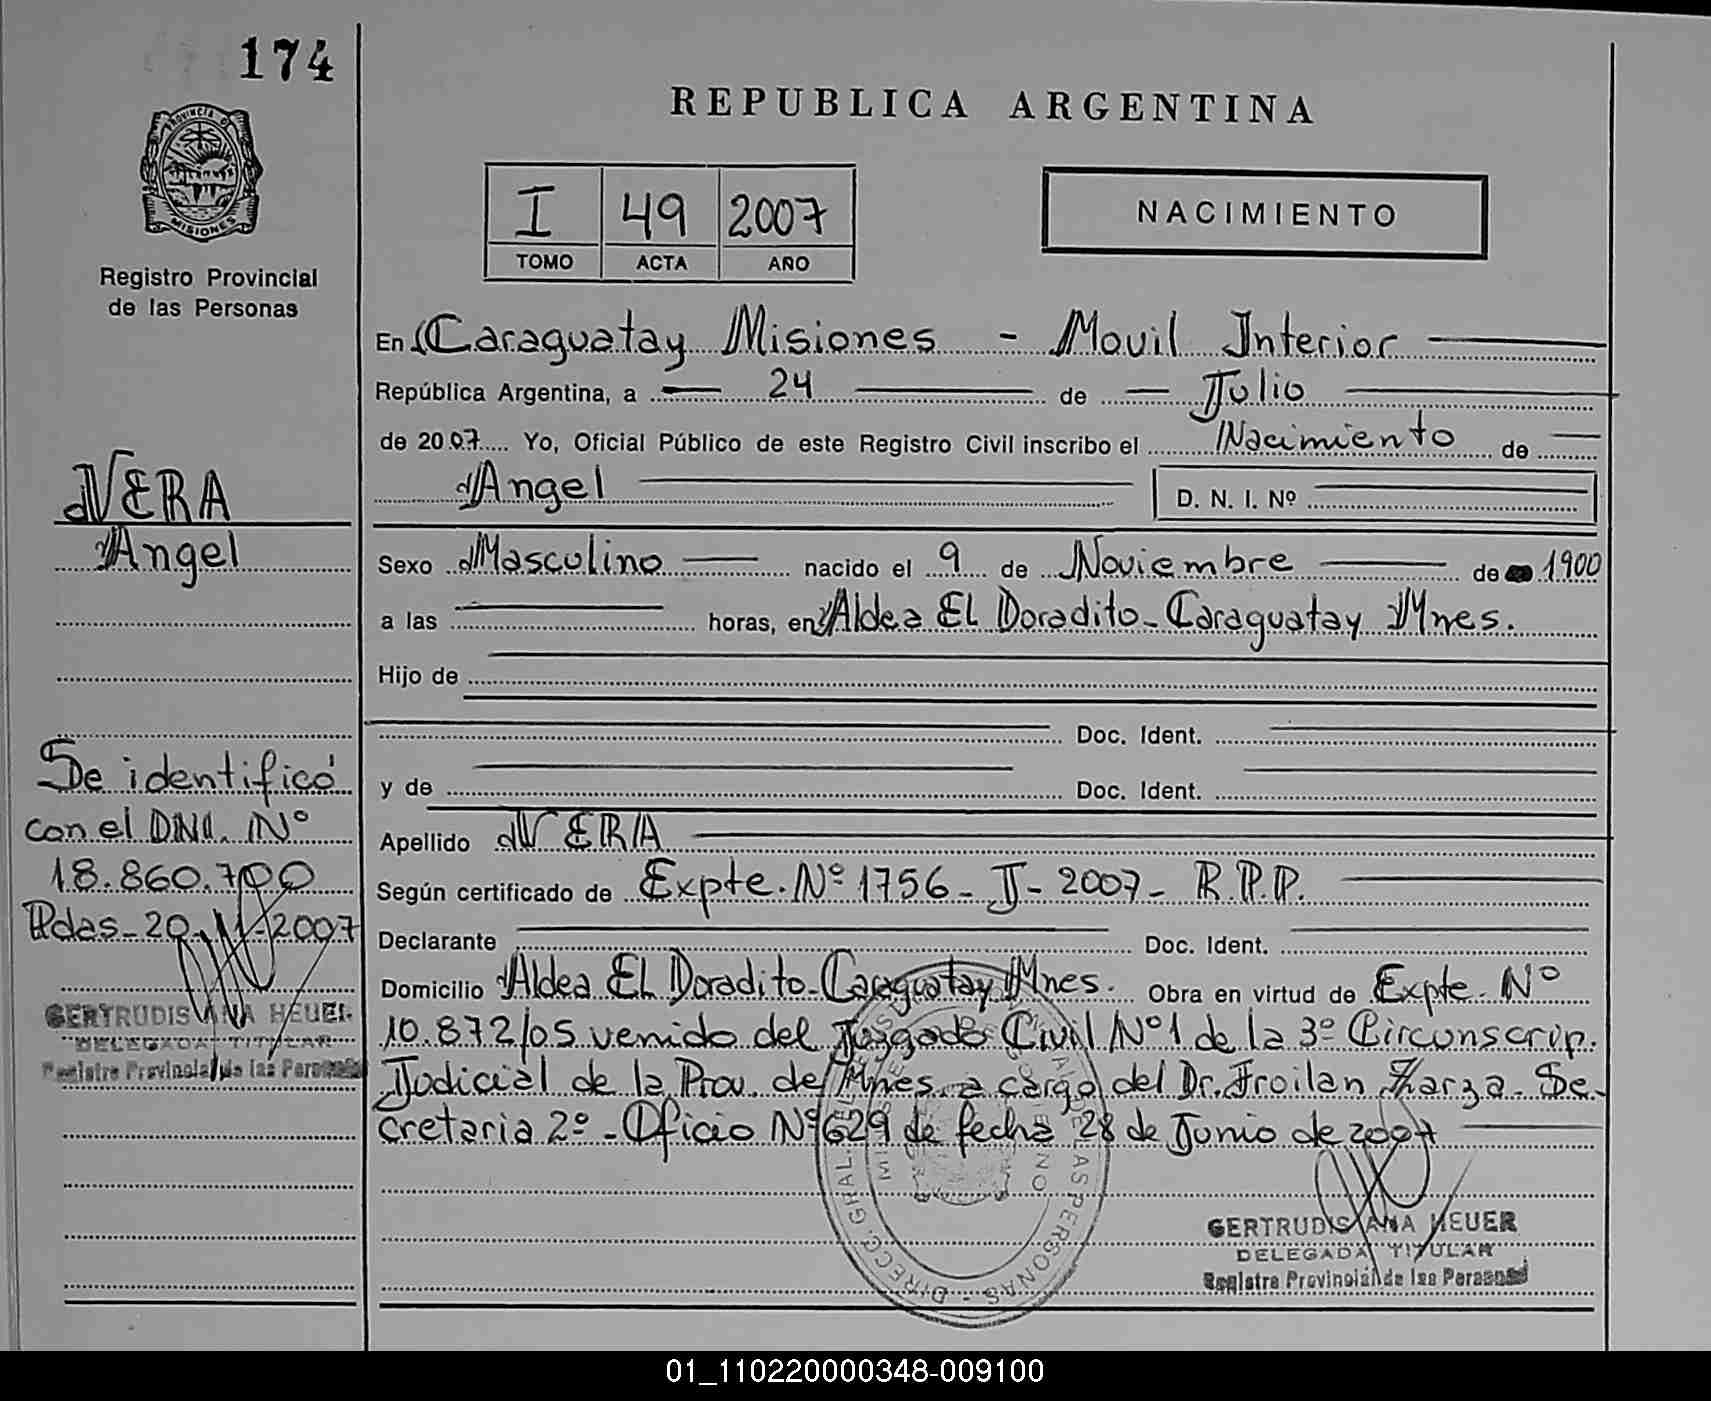 174
PROVINCIA DE
MISIONES
Registro Provincial
de las Personas
REPUBLICA ARGENTINA
I 49 2007
TOMO ACTA AÑO
NACIMIENTO
En Caraguatay Misiones - Movil Interior
República Argentina, a 24 de Julio
de 2007 Yo, Oficial Público de este Registro Civil inscribo el Nacimiento de
Angel D. N. I. Nº
Sexo Masculino nacido el 9 de Noviembre de 1900
a las horas, en Aldea El Doradito - Caraguatay Mnes.
Hijo de
Doc. Ident.
y de Doc. Ident.
Apellido VERA
Según certificado de Expte. Nº 1756 - J - 2007 - R.P.P.
Declarante Doc. Ident.
Domicilio Aldea El Doradito - Caraguatay Mnes. Obra en virtud de Expte. Nº
10.872/05 venido del Juzgado Civil Nº 1 de la 3º Circunscrip.
Judicial de la Prov. de Mnes. a cargo del Dr. Froilan Zarza. Se-
cretaria 2º - Oficio Nº 629 de fecha 28 de Junio de 2007
GERTRUDIS ANA HEUER
DELEGADA TITULAR
Registro Provincial de las Personas
VERA
Angel
Se identificó
con el DNI. Nº
18.860.700
Pdas - 20-11-2007
GERTRUDIS ANA HEUER
DELEGADA TITULAR
Registro Provincial de las Personas
DIRECC. GRAL. LAS PERSONAS
01_110220000348-009100